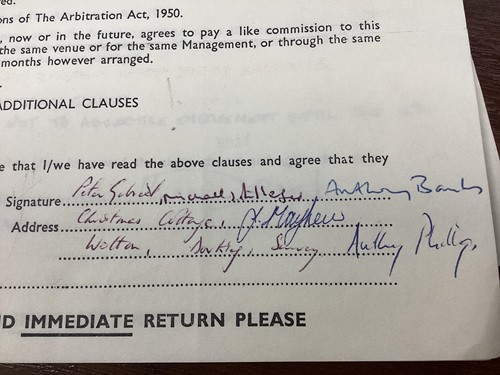 ed.
ons of The Arbitration Act, 1950.
, now or in the future, agrees to pay a like commission to this
the same venue or for the same Management, or through the same
months however arranged.
ADDITIONAL CLAUSES
e that I/we have read the above clauses and agree that they
Signature Peter Gabriel, Anthony Banks
Address Christmas Cottage, J. Mayhew
Wotton, Surrey Anthony Phillips
D IMMEDIATE RETURN PLEASE